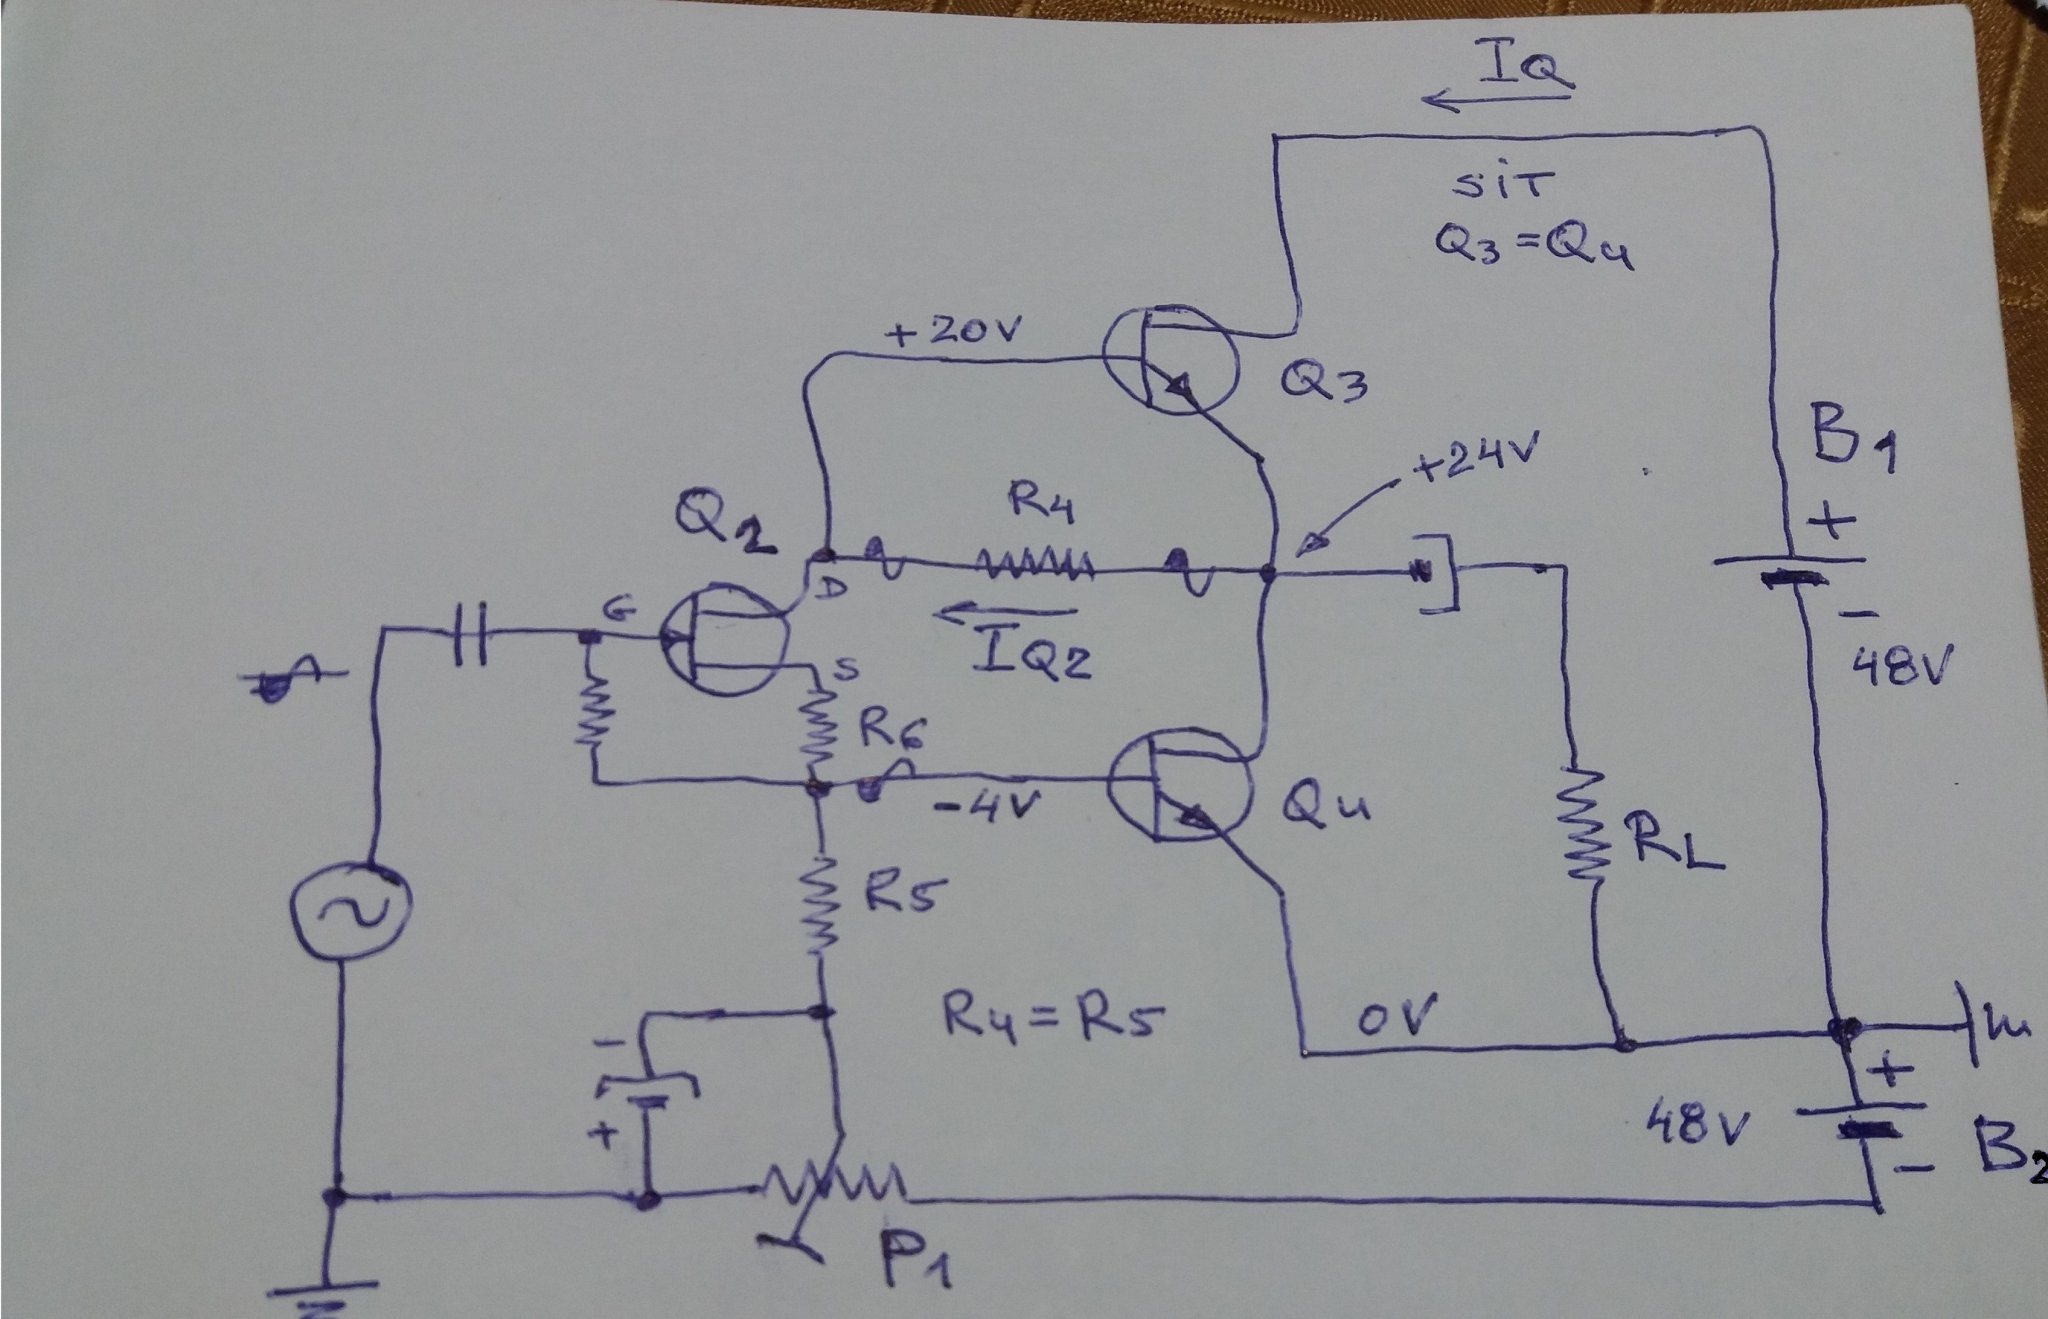 IQ
SIT
Q3=Q4
+20V
Q3
B1
+24V
+
R4
Q2
D
G
IQ2
-
48V
S
R6
-4V
Q4
RL
R5
R4=R5
0V
-
+
+
48V
-
B2
P1